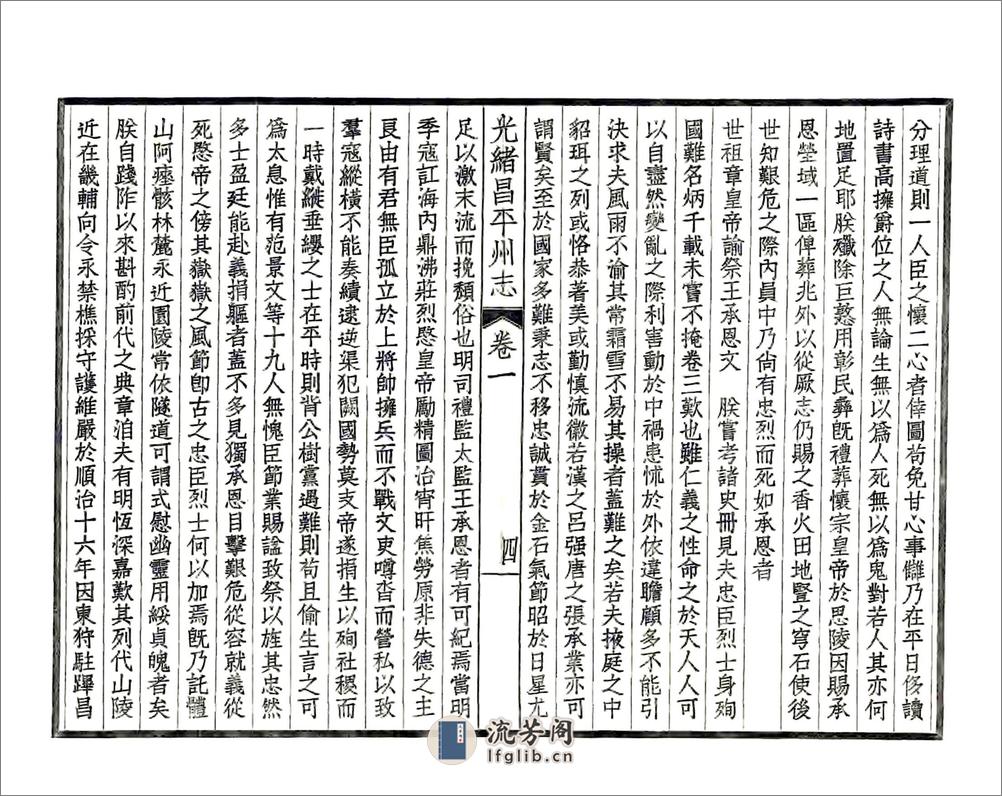 分理道則一人臣之懷二心者倖圖苟免甘心事讎乃在平日侈讀
詩書高擁爵位之人無論生無以爲人死無以爲鬼對若人其亦何
地置足耶朕殲除巨憝用彰民彝旣禮葬懷宗皇帝於思陵因賜承
恩塋域一區俾葬兆外以從厥志仍賜之香火田地豎之穹石使後
世知艱危之際內員中乃尙有忠烈而死如承恩者
世祖章皇帝諭祭王承恩文 朕嘗考諸史冊見夫忠臣烈士身殉
國難名炳千載未嘗不掩卷三歎也雖仁義之性命之於天人人可
以自盡然變亂之際利害動於中禍患怵於外依違瞻顧多不能引
決求夫風雨不渝其常霜雪不易其操者蓋難之矣若夫掖庭之中
貂珥之列或恪恭著美或勤慎流徽若漢之呂强唐之張承業亦可
謂賢矣至於國家多難秉志不移忠誠貫於金石氣節昭於日星尤
光緒昌平州志 卷一 四
足以激末流而挽頹俗也明司禮監太監王承恩者有可紀焉當明
季寇訌海內鼎沸莊烈愍皇帝勵精圖治宵旰焦勞原非失德之主
良由有君無臣孤立於上將帥擁兵而不戰文吏噂沓而營私以致
羣寇縱橫不能奏績逮逆渠犯闕國勢莫支帝遂捐生以殉社稷而
一時戴縰垂纓之士在平時則背公樹黨遇難則苟且偷生言之可
爲太息惟有范景文等十九人無愧臣節業賜諡致祭以旌其忠然
多士盈廷能赴義捐軀者蓋不多見獨承恩目擊艱危從容就義從
死愍帝之傍其嶽嶽之風節卽古之忠臣烈士何以加焉旣乃託體
山阿瘞骸林麓永近園陵常依隧道可謂式慰幽靈用綏貞魄者矣
朕自踐阼以來斟酌前代之典章洎夫有明恆深嘉歎其列代山陵
近在畿輔向令永禁樵採守護維嚴於順治十六年因東狩駐蹕昌
流芳阁
lfglib.cn